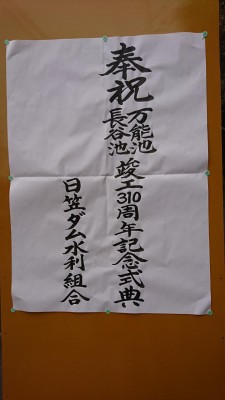 奉祝
万能池
長谷池
竣工310周年記念式典
日笠ダム水利組合